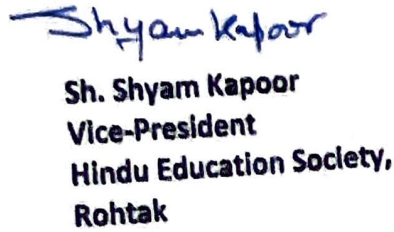 Shyam Kapoor
Sh. Shyam Kapoor
Vice-President
Hindu Education Society,
Rohtak